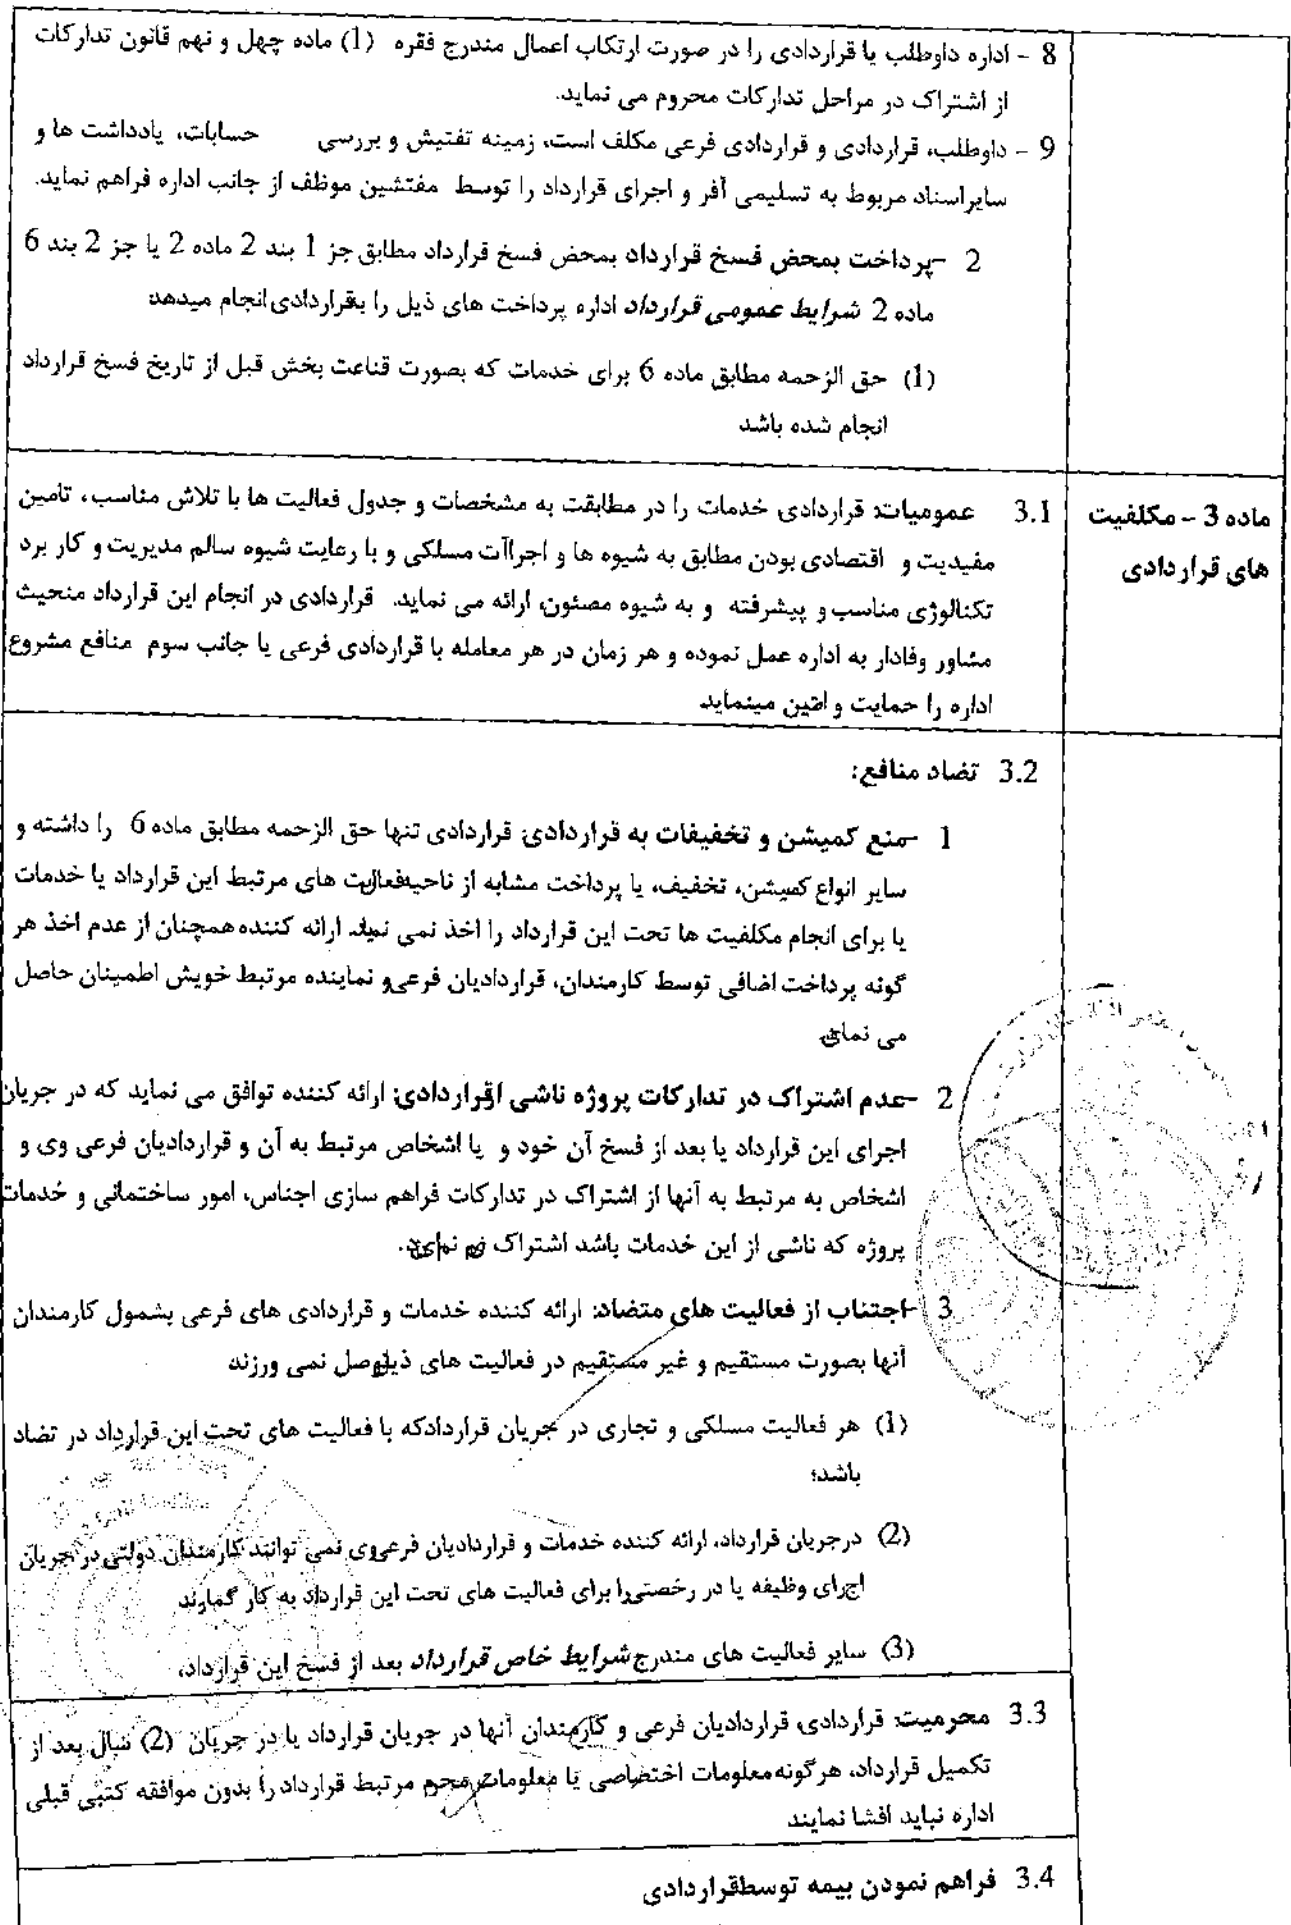 8 - اداره داوطلب یا قراردادی را در صورت ارتکاب اعمال مندرج فقره (1) ماده چهل و نهم قانون تدارکات
از اشتراک در مراحل تدارکات محروم می نماید.
9 - داوطلب، قراردادی و قراردادی فرعی مکلف است، زمینه تفتیش و بررسی حسابات، یادداشت ها و
سایراسناد مربوط به تسلیمی آفر و اجرای قرارداد را توسط مفتشین موظف از جانب اداره فراهم نماید.
2 -پرداخت بمحض فسخ قرارداد بمحض فسخ قرارداد مطابق جز 1 بند 2 ماده 2 یا جز 2 بند 6
ماده 2 شرایط عمومی قرارداد اداره پرداخت های ذیل را بقراردادی انجام میدهد
(1) حق الزحمه مطابق ماده 6 برای خدمات که بصورت قناعت بخش قبل از تاریخ فسخ قرارداد
انجام شده باشد
ماده 3 - مکلفیت
های قراردادی
3.1 عمومیات: قراردادی خدمات را در مطابقت به مشخصات و جدول فعالیت ها با تلاش مناسب، تامین
مفیدیت و اقتصادی بودن مطابق به شیوه ها و اجراآت مسلکی و با رعایت شیوه سالم مدیریت و کار برد
تکنالوژی مناسب و پیشرفته و به شیوه مصئون، ارائه می نماید. قراردادی در انجام این قرارداد منحیث
مشاور وفادار به اداره عمل نموده و هر زمان در هر معامله با قراردادی فرعی یا جانب سوم منافع مشروع
اداره را حمایت و مینماید.
3.2 تضاد منافع:
1 -منع کمیشن و تخفیفات به قراردادی: قراردادی تنها حق الزحمه مطابق ماده 6 را داشته و
سایر انواع کمیشن، تخفیف، یا پرداخت مشابه از ناحیه فعالیت های مرتبط این قرارداد یا خدمات
یا برای انجام مکلفیت ها تحت این قرارداد را اخذ نمی نماید. ارائه کننده همچنان از عدم اخذ هر
گونه پرداخت اضافی توسط کارمندان، قراردادیان فرعی و نماینده مرتبط خویش اطمینان حاصل
می نماید.
2 -عدم اشتراک در تدارکات پروژه ناشی از قراردادی: ارائه کننده توافق می نماید که در جریان
اجرای این قرارداد یا بعد از فسخ آن خود و یا اشخاص مرتبط به آن و قراردادیان فرعی وی و
اشخاص به مرتبط به آنها از اشتراک در تدارکات فراهم سازی اجناس، امور ساختمانی و خدمات
پروژه که ناشی از این خدمات باشد اشتراک نمی نماید.
3 -اجتناب از فعالیت های متضاد: ارائه کننده خدمات و قراردادی های فرعی بشمول کارمندان
آنها بصورت مستقیم و غیر مستقیم در فعالیت های ذیل نمی ورزند
(1) هر فعالیت مسلکی و تجاری در جریان قراردادکه با فعالیت های تحت این قرارداد در تضاد
باشد؛
(2) درجریان قرارداد، ارائه کننده خدمات و قراردادیان فرعی وی نمی توانند کارمندان دولتی در جریان
اجرای وظیفه یا در رخصتی را برای فعالیت های تحت این قرارداد به کار گمارند
(3) سایر فعالیت های مندرج شرایط خاص قرارداد بعد از فسخ این قرارداد،
3.3 محرمیت: قراردادی، قراردادیان فرعی و کارمندان آنها در جریان قرارداد یا در جریان (2) سال بعد از
تکمیل قرارداد، هرگونه معلومات اختصاصی یا معلومات محرم مرتبط قرارداد را بدون موافقه کتبی قبلی
اداره نباید افشا نمایند
3.4 فراهم نمودن بیمه توسط قراردادی